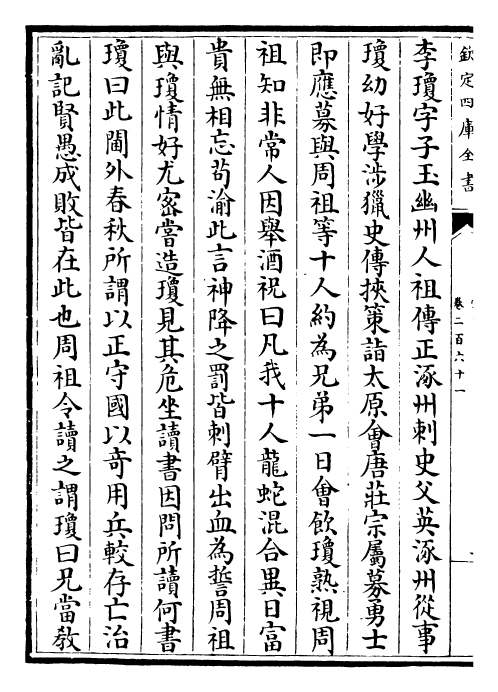 欽定四庫全書
卷二百六十一
李瓊字子玉幽州人祖傳正涿州刺史父英涿州從事
瓊幼好學涉獵史傳挾策詣太原會唐莊宗屬募勇士
即應募與周祖等十人約為兄弟一日會飲瓊熟視周
祖知非常人因舉酒祝曰凡我十人龍蛇混合異日富
貴無相忘茍渝此言神降之罰皆刺臂出血為誓周祖
與瓊情好尤宻嘗造瓊見其危坐讀書因問所讀何書
瓊曰此閫外春秋所謂以正守國以竒用兵較存亡治
亂記賢愚成敗皆在此也周祖令讀之謂瓊曰兄當教